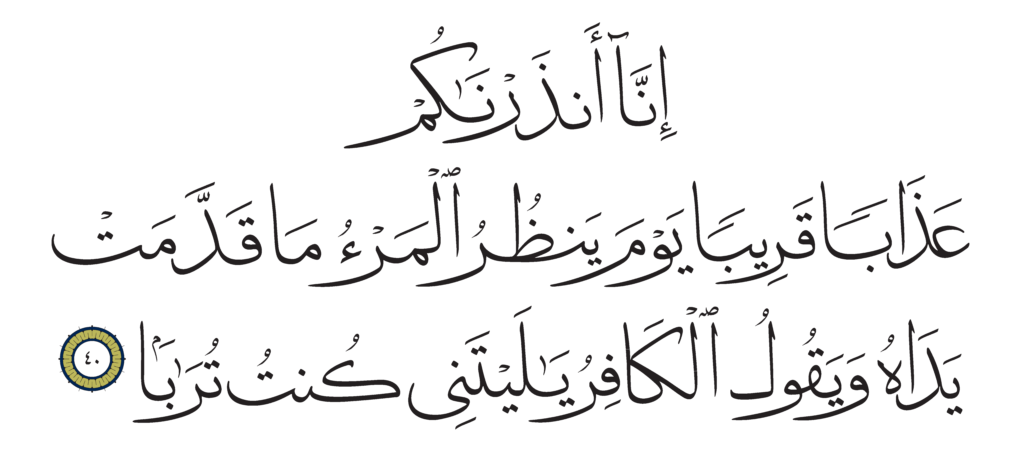 إِنَّآ أَنذَرْنَٰكُمْ
عَذَابًا قَرِيبًا يَوْمَ يَنظُرُ ٱلْمَرْءُ مَا قَدَّمَتْ
يَدَاهُ وَيَقُولُ ٱلْكَافِرُ يَٰلَيْتَنِى كُنتُ تُرَٰبًۢا ٤٠